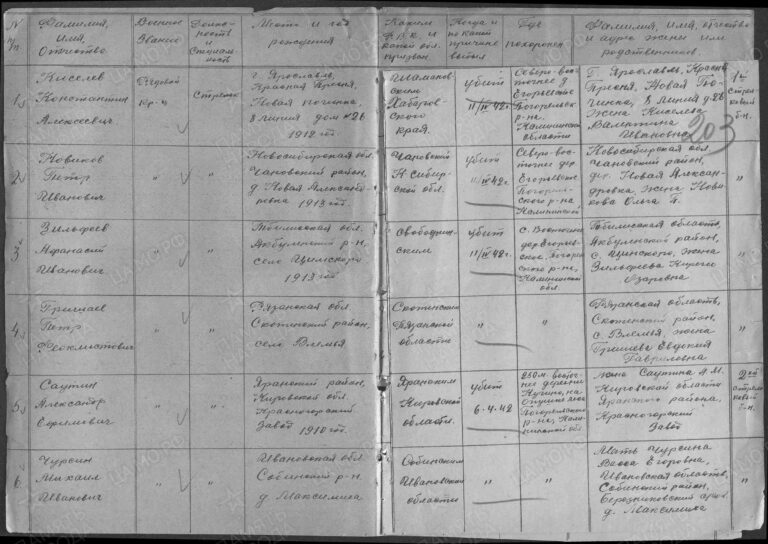 N п/п.
Фамилия, имя, Отчество
Военное Звание
Должность и Специальность
Место и год рождения
Каким Р.В.К. и какой обл. призван
Когда и по какой причине выбыл
Где похоронен
Фамилия, имя, отчество и адрес жены или родственников.
203
1.
Киселев
Константин
Алексеевич
Рядовой
Кр-ц
Стрелок
г. Ярославль,
Красная Пресня,
Новая починка,
8 линия дом №26
1912 гт.
Хабаров-
ского
края.
убит
11/IV 42г.
Северо-вос-
точнее д.
Егорьевское
Погорельск.
р-на.
Калининской
области
г. Ярославль, Красн.
Пресня, Новая По-
чинка, 8 линия д-26.
Жена Киселева
Валентина
Ивановна
1й
Стрел-
ковый
б-н.
2.
Новиков
Петр
Иванович
"
"
Новосибирская обл.
Чановский район,
д. Новая Александ-
ровка 1913 гт.
Чановский
Н сибир-
ской обл.
убит
11/IV 42г.
Северо-вос-
точнее дер.
Егорьевское
Погорел-
ского р-на
Калининской
Новосибирская обл.
Чановский район,
дер. Новая Алексан-
дровка, жена Нови-
кова Ольга
"
3.
Зилфоев
Афанасий
Иванович
"
"
Тбилисская обл.
село Цинскоро
1913 гт.
убит
11/IV 42г.
с. Восточнее
дер Егорьев-
ское, Погоре-
ского р-на,
Калининской
обл.
Тбилисская область,
район,
с. Цинскоро, жена
Зильфоева
"
4.
Гришаев
Петр
Феоклистович
"
"
Рязанская обл.
Скопинский район,
село Вослебово
Скопинским
Рязанской
области
"
"
Рязанская область,
Скопинский район,
жена
Гришаева Евдокия
Гавриловна
"
5.
Саутин
Александр
Ефимович
"
"
Яранский район,
Кировской обл.
Красногорский
Завод 1910 гт.
Яранским
Кировской
области.
убит
6.4.42
250 м. восточ-
нее деревни
на
опушке леса
Погорельского
р-на, Кали-
нинской обл
жена Саутина А.М.
Кировской области
Яранского района,
Красногорский
Завод
2ой
стрел-
ковый
б-н.
6.
Чурсин
Михаил
Иванович
"
"
Ивановская обл
Собинский р-н
д. Максимиха
Собинским
Ивановской
области
"
"
Мать Чурсина
Васса Егоровна,
Ивановская область,
Собинский район,
Березниковский
д. Максимиха
"